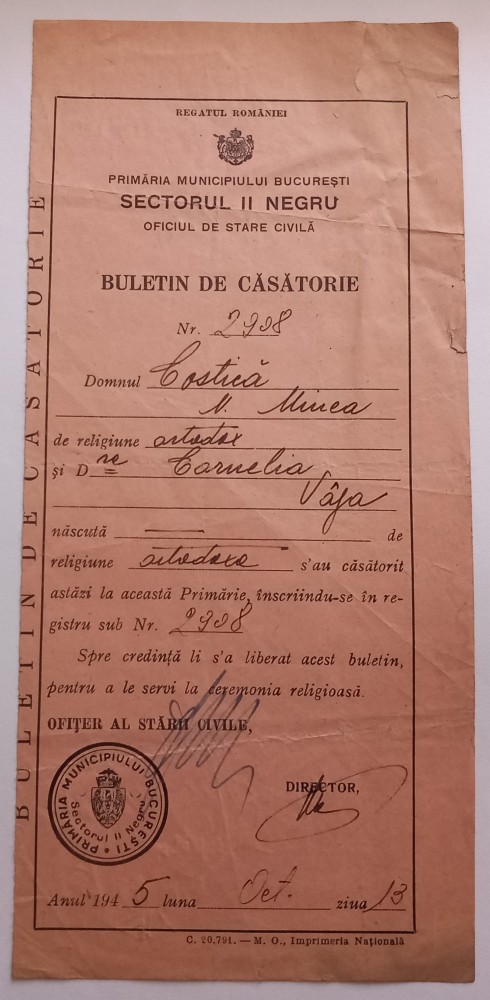 BULETIN DE CĂSĂTORIE
REGATUL ROMÂNIEI
PRIMĂRIA MUNICIPIULUI BUCUREȘTI
SECTORUL II NEGRU
OFICIUL DE STARE CIVILĂ
BULETIN DE CĂSĂTORIE
Nr. 2908
Domnul Costică
N. Mincea
de religiune ortodox
și D ra Cornelia
Vâja
născută — de
religiune ortodoxa s'au căsătorit
astăzi la această Primărie, înscriindu-se în re-
gistru sub Nr. 2908
Spre credință li s'a liberat acest buletin,
pentru a le servi la ceremonia religioasă.
OFIȚER AL STĂRII CIVILE,
DIRECTOR,
PRIMĂRIA MUNICIPIULUI BUCUREȘTI
Sectorul II Negru
Anul 1945 luna Oct. ziua 13
C. 20.791. — M. O., Imprimeria Națională